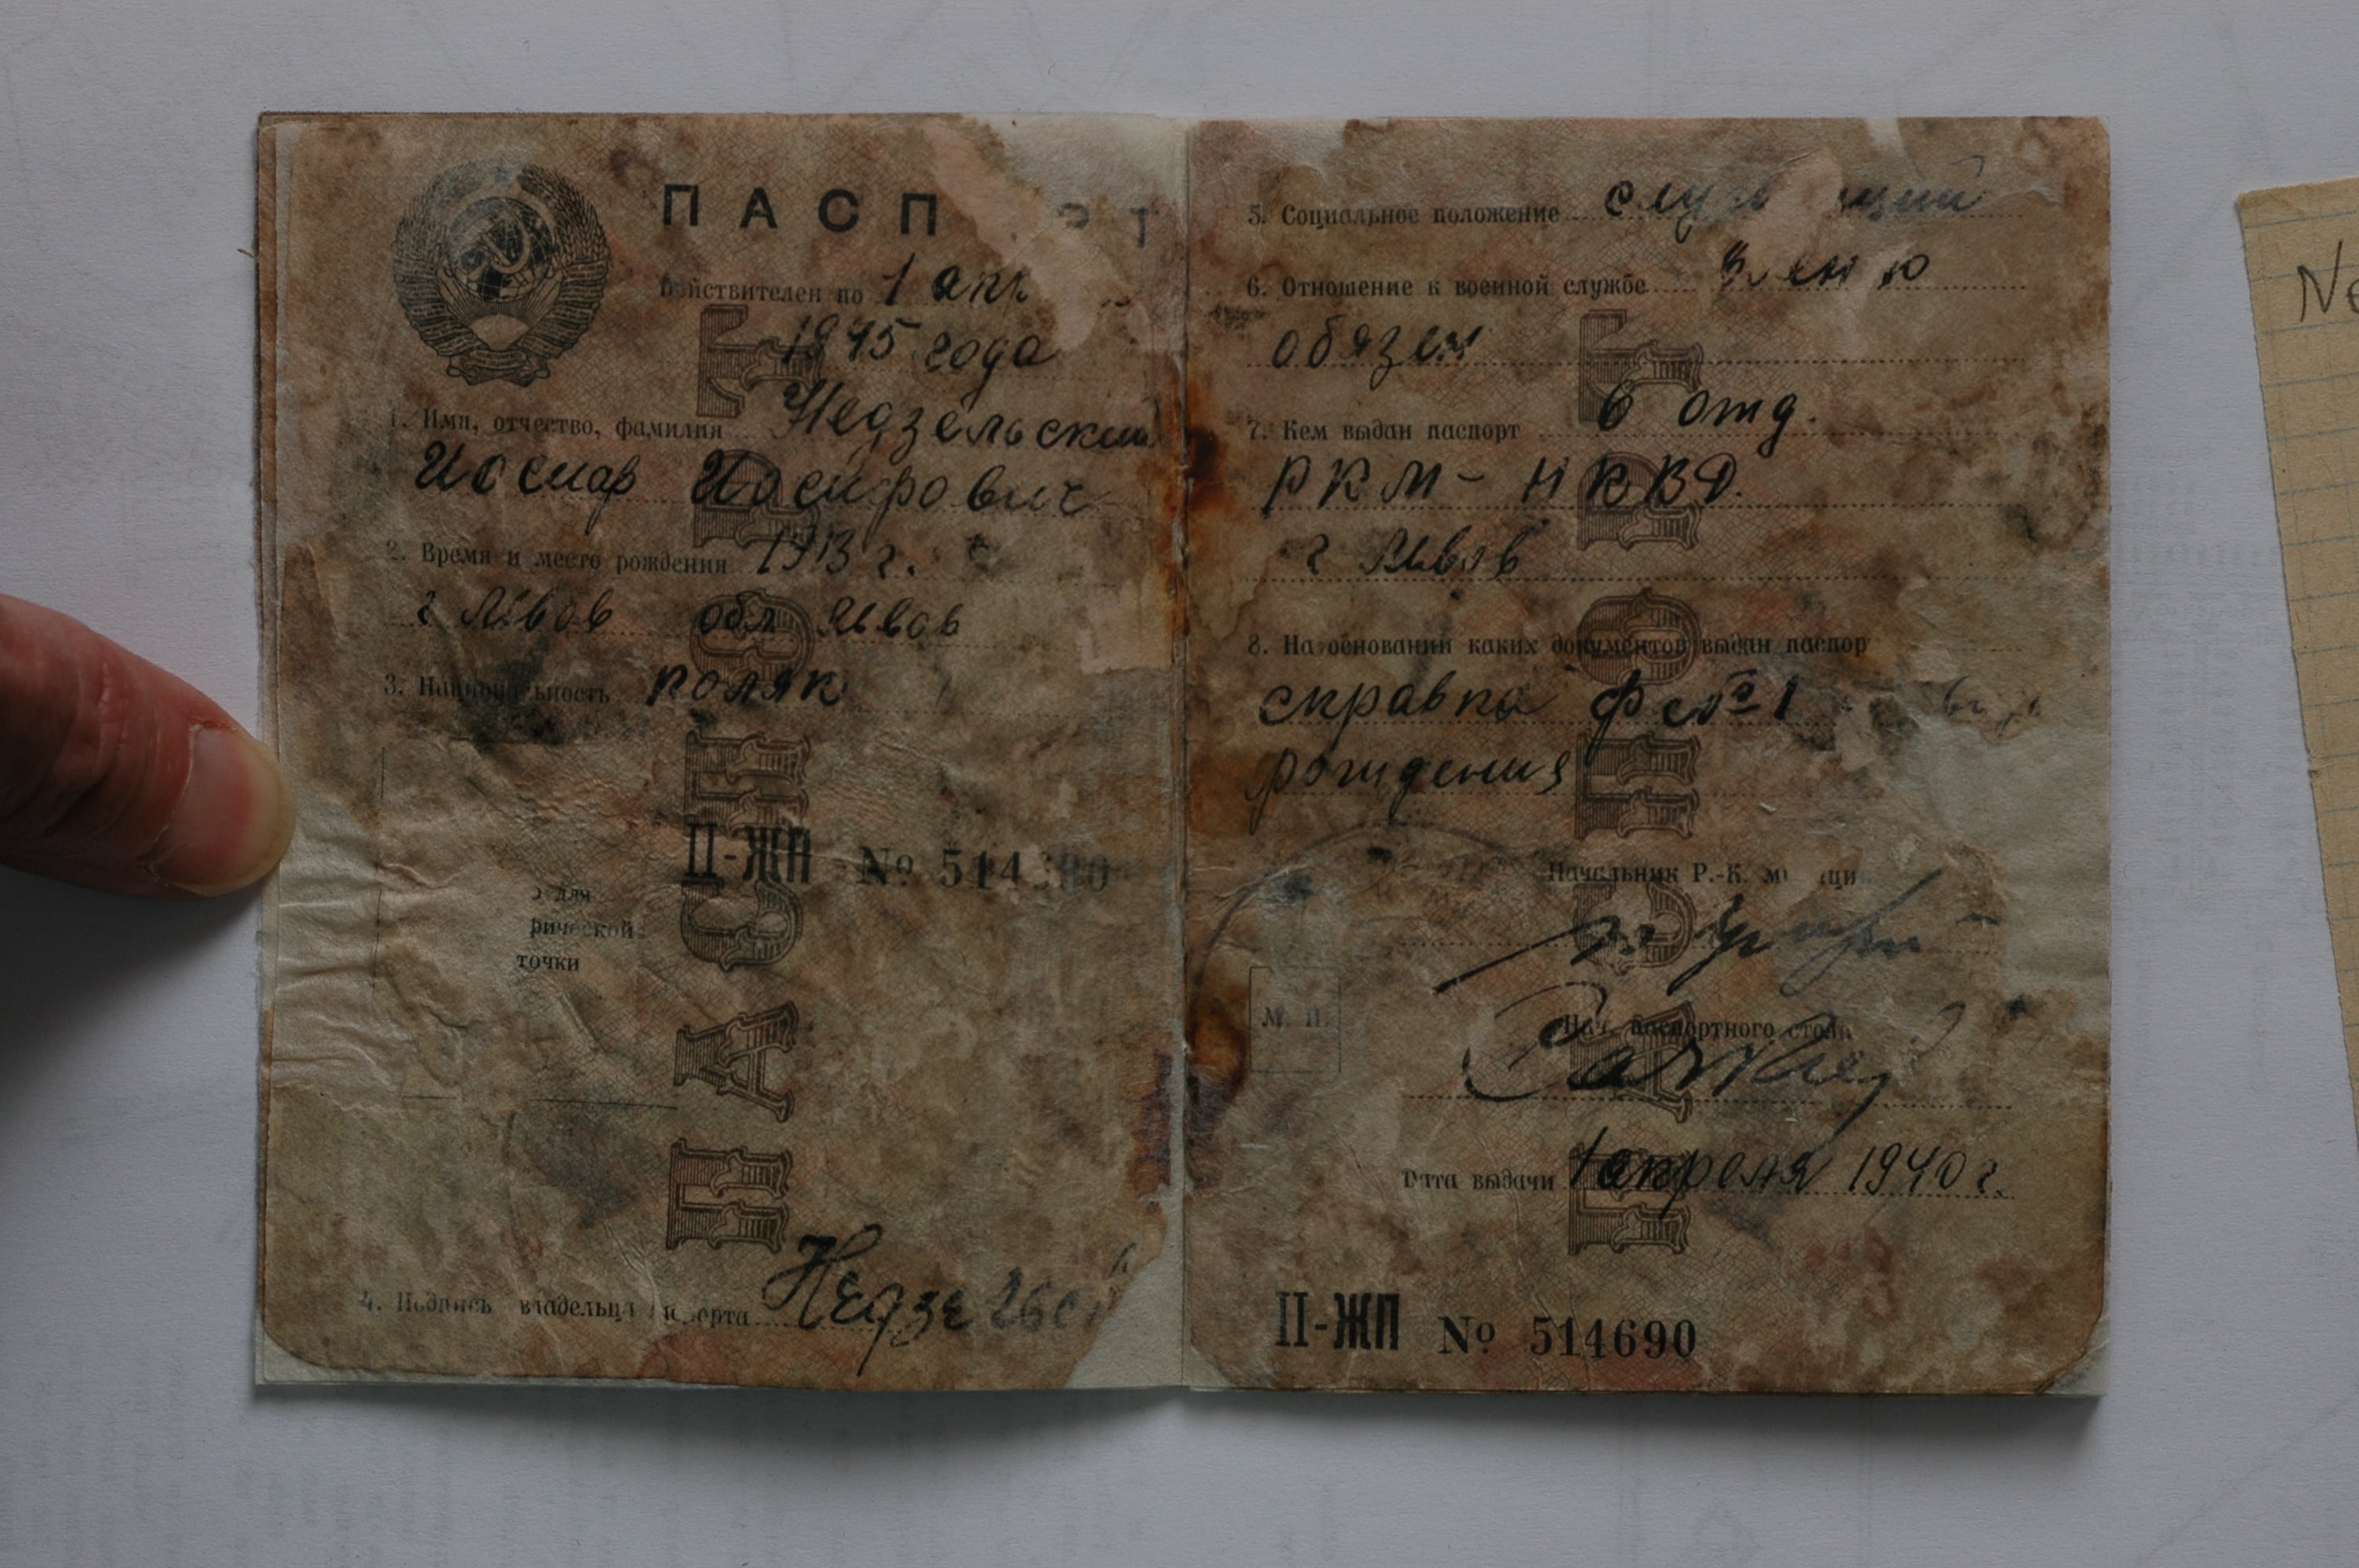 ПАСП РТ
Действителен по 1 апр
1945 года
1. Имя, отчество, фамилия Недзельский
Иосиф Иосифович
2. Время и место рождения 1913 г.
г Львов обл Львов
3. Национальность поляк
II-ЖП № 514690
для
рической
точки
4. Подпись владельца паспорта Недзельск
ПАСПОРТ
5. Социальное положение служащий
6. Отношение к военной службе военно
обязан
7. Кем выдан паспорт 6 отд.
РКМ - НКВД.
г Львов
8. На основании каких документов выдан паспор
справка ф №1
рождения
Начальник Р.-К. милиции
М. П.
Нач. паспортного стола
Дата выдачи 1 апреля 1940 г.
II-ЖП № 514690
ПАСПОРТ
Ne